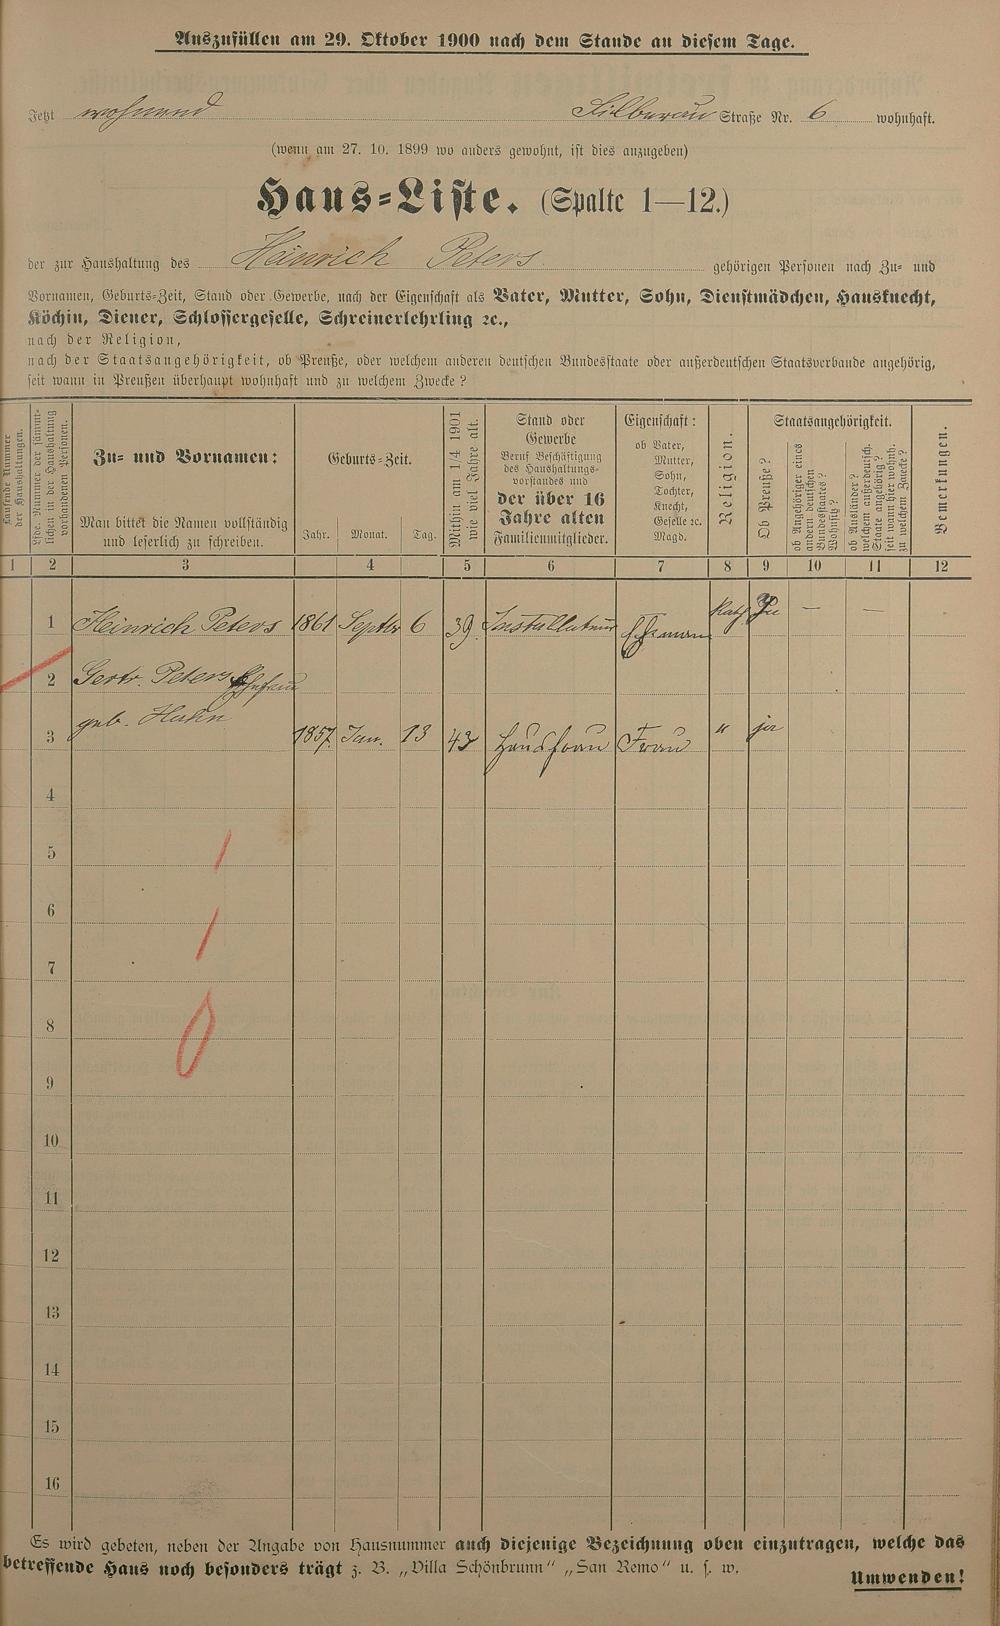 Auszufüllen am 29. Oktober 1900 nach dem Stande an diesem Tage.
Jetzt wohnend Silberau Straße Nr. 6 wohnhaft.
(wenn am 27. 10. 1899 wo anders gewohnt, ist dies anzugeben)
Haus=Liste. (Spalte 1—12.)
der zur Haushaltung des Heinrich Peters gehörigen Personen nach Zu= und
Vornamen, Geburts=Zeit, Stand oder Gewerbe, nach der Eigenschaft als Vater, Mutter, Sohn, Dienstmädchen, Hausknecht,
Köchin, Diener, Schlossergeselle, Schreinerlehrling ec.,
nach der Religion,
nach der Staatsangehörigkeit, ob Preuße, oder welchem anderen deutschen Bundesstaate oder außerdeutschen Staatsverbande angehörig,
seit wann in Preußen überhaupt wohnhaft und zu welchem Zwecke?
Laufende Nummer
der Haushaltungen.
Lfde. Nummer der sämmt-
lichen in der Haushaltung
vorhandenen Personen.
Zu= und Vornamen:
Man bittet die Namen vollständig
und leserlich zu schreiben.
Geburts=Zeit.
Jahr. Monat. Tag.
Mithin am 1/4 1901
wie viel Jahre alt.
Stand oder
Gewerbe
Beruf Beschäftigung
des Haushaltungs-
vorstandes und
der über 16
Jahre alten
Familienmitglieder.
Eigenschaft:
ob Vater,
Mutter,
Sohn,
Tochter,
Knecht,
Geselle ec.
Magd.
Religion.
Staatsangehörigkeit.
Ob Preuße?
ob Angehöriger eines
andern deutschen
Bundesstaates?
Wohnsitz?
ob Ausländer?
welchem außerdeutsch.
Staate angehörig?
seit wann hier wohnh.
zu welchem Zwecke?
Bemerkungen.
1 2 3 4 5 6 7 8 9 10 11 12
1 Heinrich Peters 1861 Septbr 6 39 Installateur Ehemann Kath Pr — —
2 Gertr. Peters Ehefrau
geb. Hahn
3 1857 Jan. 13 43 Hausfrau Frau " ja
4
5
6
7
8
9
10
11
12
13
14
15
16
Es wird gebeten, neben der Angabe von Hausnummer auch diejenige Bezeichnung oben einzutragen, welche das
betreffende Haus noch besonders trägt z. B. „Villa Schönbrunn“ „San Remo“ u. s. w.
Umwenden!